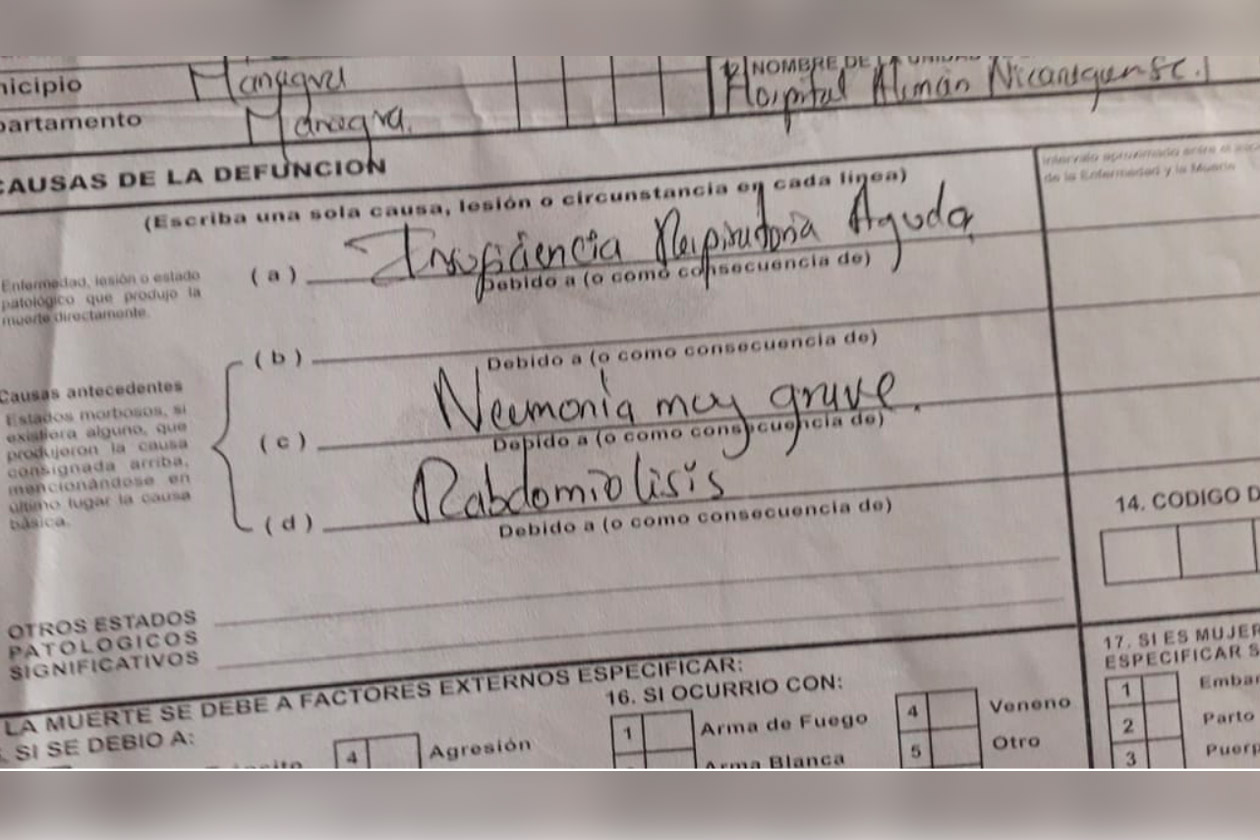 nicipio Managua
12 NOMBRE DE LA UNIDAD
Hospital Alemán Nicaraguense.
partamento Managua.
CAUSAS DE LA DEFUNCION
(Escriba una sola causa, lesión o circunstancia en cada línea)
Intervalo aproximado entre el
de la Enfermedad y la Muerte
Enfermedad, lesión o estado
patológico que produjo la
muerte directamente.
(a) Insuficiencia Respiratoria Aguda
Debido a (o como consecuencia de)
(b)
Debido a (o como consecuencia de)
Causas antecedentes
Estados morbosos, si
existiera alguno, que
produjeron la causa
consignada arriba,
mencionándose en
último lugar la causa
básica.
(c) Neumonia muy grave.
Debido a (o como consecuencia de)
(d) Rabdomiolisis
Debido a (o como consecuencia de)
14. CODIGO D
OTROS ESTADOS
PATOLOGICOS
SIGNIFICATIVOS
LA MUERTE SE DEBE A FACTORES EXTERNOS ESPECIFICAR:
SI SE DEBIO A:
4 Agresión
16. SI OCURRIO CON:
1 Arma de Fuego
Arma Blanca
4 Veneno
5 Otro
17. SI ES MUJER
ESPECIFICAR S
1 Embar
2 Parto
3 Puerp